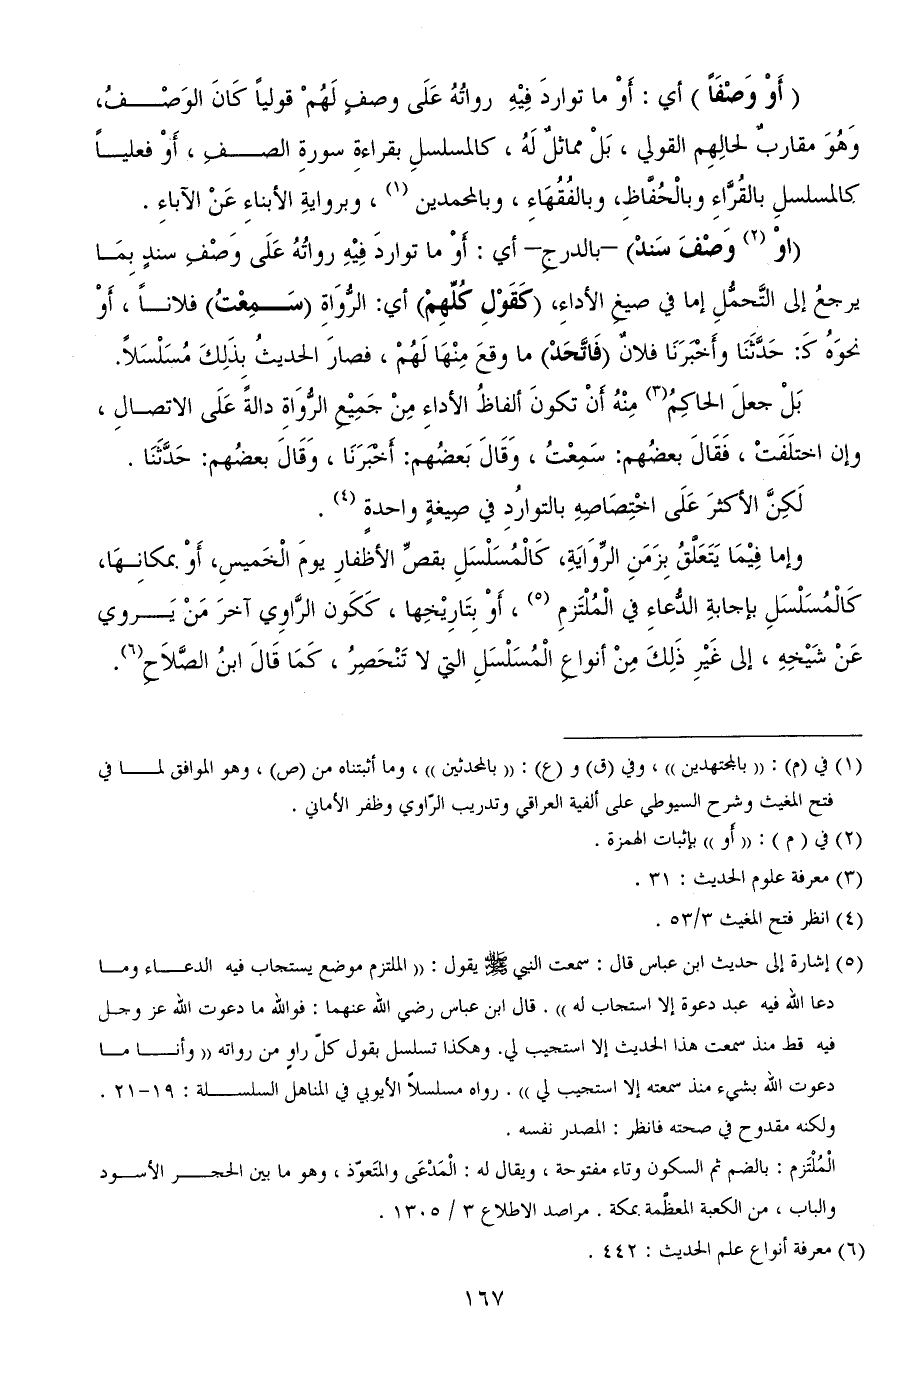 ( أَوْ وَصْفَاً ) أي : أَوْ ما تواردَ فِيْهِ رواتُهُ عَلَى وصفٍ لَهُمْ قولياً كَانَ الوَصْـــفُ،
وَهُوَ مقاربٌ لحالِهم القولي ، بَلْ مماثلٌ لَهُ ، كالمسلسلِ بقراءةِ سورةِ الصـــفِ ، أَوْ فعليـــاً
كالمسلسلِ بالقُرَّاءِ وبالْحُفَّاظِ، وبالفُقهَاءِ ، وبالمحمدين (١) ، وبروايةِ الأبناءِ عَنْ الآباءِ .
(اوْ (٢) وَصْفَ سَندْ) –بالدرجِ– أي : أَوْ ما تواردَ فِيْهِ رواتُهُ عَلَى وَصْفِ سندٍ بِمَــا
يرجعُ إلى التَّحمُّلِ إما في صيغِ الأداءِ، (كَقَوْلِ كُلِّهِمْ) أي: الرُّوَاةِ (سَــمِعْتُ) فلانـــاً ، أَوْ
نحوَهُ كَـ: حَدَّثَنَا وأَخْبَرَنَا فلانٌ (فَاتَّحَدْ) ما وقعَ مِنْهَا لَهُمْ ، فصارَ الحديثُ بِذَلِكَ مُسَلْسَلاً.
بَلْ جعلَ الحاكِمُ(٣) مِنْهُ أَنْ تكونَ ألفاظُ الأداءِ مِنْ جَمِيْعِ الرُّوَاةِ دالةً عَلَى الاتصـالِ ،
وإن اختلَفَتْ ، فَقَالَ بعضُهم: سَمِعْتُ ، وَقَالَ بَعضُهم: أَخْبَرَنَا ، وَقَالَ بعضُهم: حَدَّثَنَا .
لَكِنَّ الأكثرَ عَلَى اخْتِصَاصِهِ بالتوارُدِ في صِيغةٍ واحدةٍ (٤) .
وإما فِيْمَا يَتَعَلَّقُ بِزَمَنِ الرِّوَايَةِ، كَالْمُسَلْسَلِ بقصِّ الأظفارِ يومَ الْخَميسِ، أَوْ بمكانِـها،
كَالْمُسَلْسَلِ بإجابةِ الدُّعاءِ في الْمُلْتَزمِ (٥) ، أَوْ بِتَاريْخِها ، ككون الرَّاوي آخرَ مَنْ يَـــروي
عَنْ شَيْخِهِ ، إلى غَيْرِ ذَلِكَ مِنْ أنواعِ الْمُسَلْسَلِ التي لا تَنْحَصِرُ ، كَمَا قَالَ ابنُ الصَّلاَحِ(٦).
(١) في (م) : (( بالمجتهدين )) ، وفي (ق) و (ع) : (( بالمحدثين )) ، وما أثبتناه من (ص) ، وهو الموافق لمـــا في
فتح المغيث وشرح السيوطي على ألفية العراقي وتدريب الرّاوي وظفر الأماني .
(٢) في ( م ) : (( أَو )) بإثبات الهمزة .
(٣) معرفة علوم الحديث : ٣١ .
(٤) انظر فتح المغيث ٥٣/٣ .
(٥) إشارة إلى حديث ابن عباس قال : سمعت النبي ﷺ يقول : (( الملتزم موضع يستجاب فيه الدعـــاء ومـا
دعا الله فيه عبد دعوة إلا استجاب له )) . قال ابن عباس رضي الله عنهما : فوالله ما دعوت الله عز وجـل
فيه قط منذ سمعت هذا الحديث إلا استجيب لي. وهكذا تسلسل بقول كلّ راوٍ من رواته (( وأنـــا مـا
دعوت الله بشيء منذ سمعته إلا استجيب لي )) . رواه مسلسلاً الأيوبي في المناهل السلسـلة : ١٩–٢١ .
ولكنه مقدوح في صحته فانظر : المصدر نفسه .
الْمُلْتَزم : بالضم ثم السكون وتاء مفتوحة ، ويقال له : الْمَدْعَى والمتَعوّذ ، وهو ما بين الحجـر الأسـود
والباب ، من الكعبة المعظّمة بمكة . مراصد الاطلاع ٣ / ١٣٠٥ .
(٦) معرفة أنواع علم الحديث : ٤٤٢ .
١٦٧